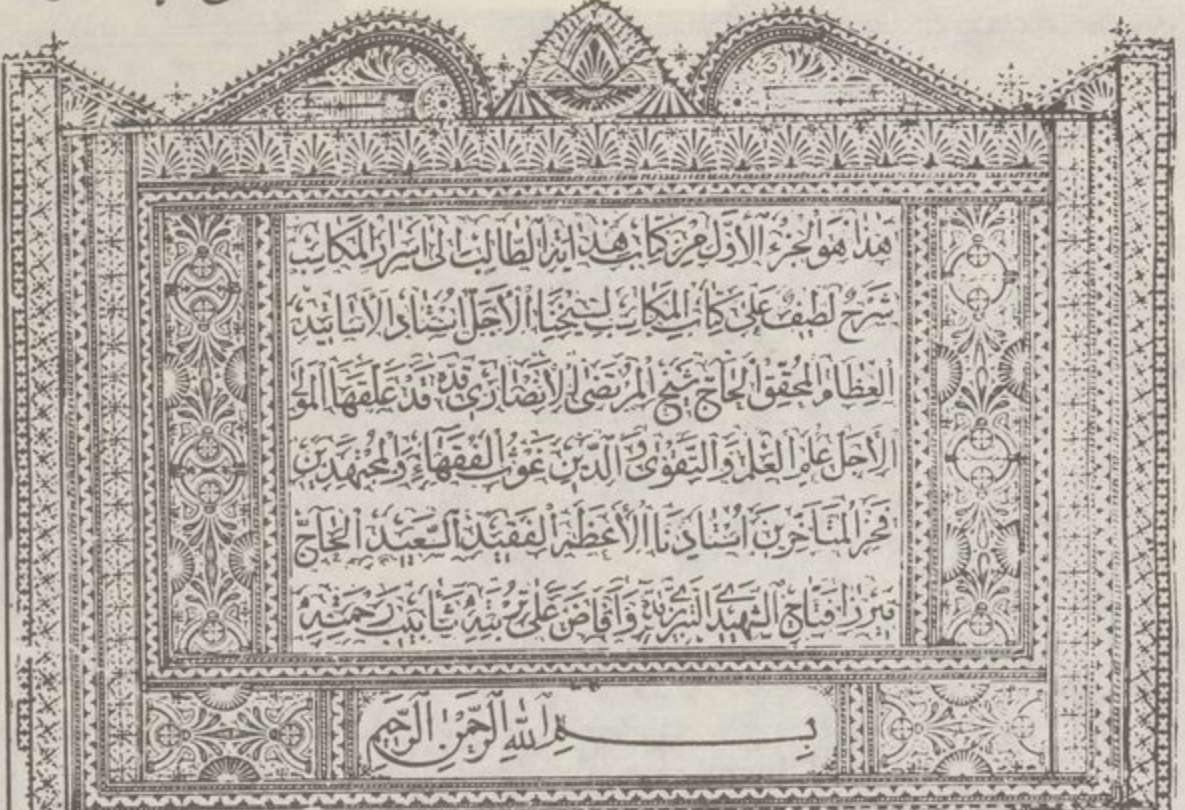 هذا هو الجزء الأول من كتاب هداية الطالب الى أسرار المكاسب
شرح لطيف على كتاب المكاسب لشيخنا الأجل استاد الأساتيد
العظام المحقق الحاج شيخ المرتضى الأنصاري قده قد علقها
الأجل علم العلم و التقوى و الدين غوث الفقهاء و المجتهدين
فخر المتأخرين استادنا الأعظم الفقيد السعيد الحاج
ميرزا فتاح الشهيدي التبريزي و أفاض على تربته شآبيب رحمته
بسم الله الرحمن الرحيم